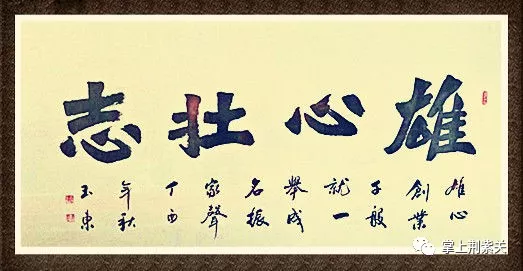 雄心壮志
雄心
創業
千般
就一
舉成
名振
家聲
丁酉
年秋
玉東
掌上荆紫关